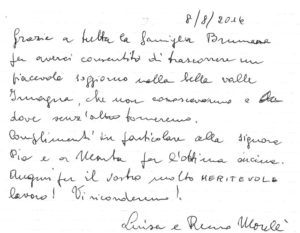 8/8/2014
Grazie a tutta la famiglia
per averci consentito di trascorrere un
piacevole soggiorno nella bella valle
Imagna, che non conoscevamo e
dove senz'altro torneremo.
Complimenti in particolare alla signora
Pia e a Marta per l'ottima cucina.
Auguri per il vostro molto MERITEVOLE
lavoro! Vi ricorderemo!
Luisa e Remo